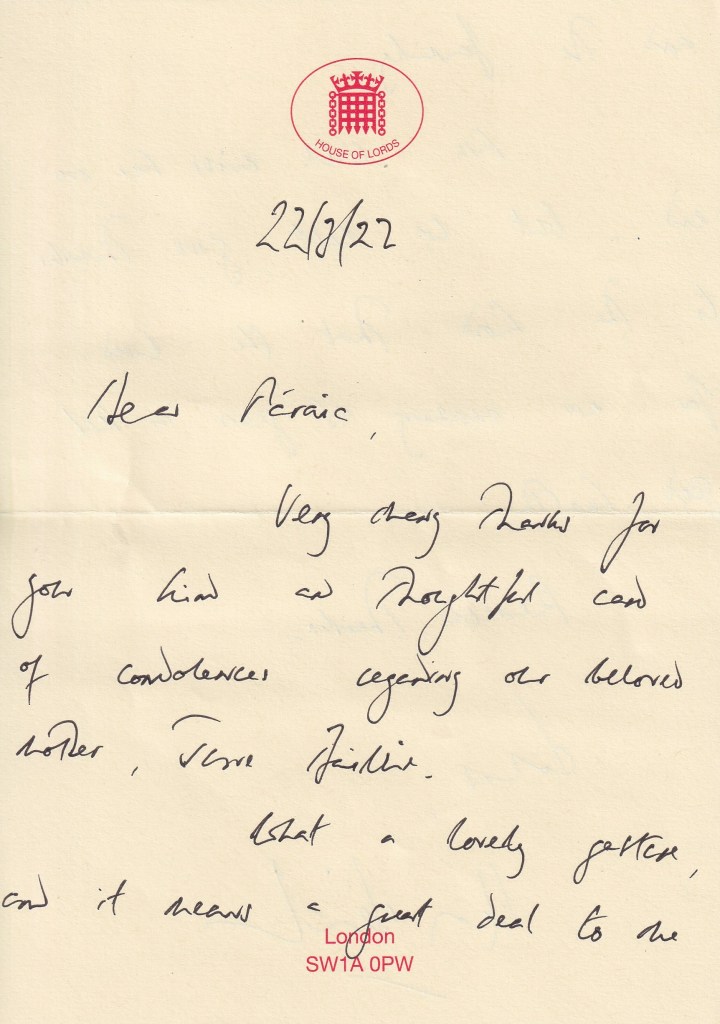 HOUSE OF LORDS
Dear Páraic,
Very many thanks for
your kind and thoughtful card
of condolences regarding our beloved
mother,
What a lovely gesture,
and it means a great deal to me
London
SW1A 0PW